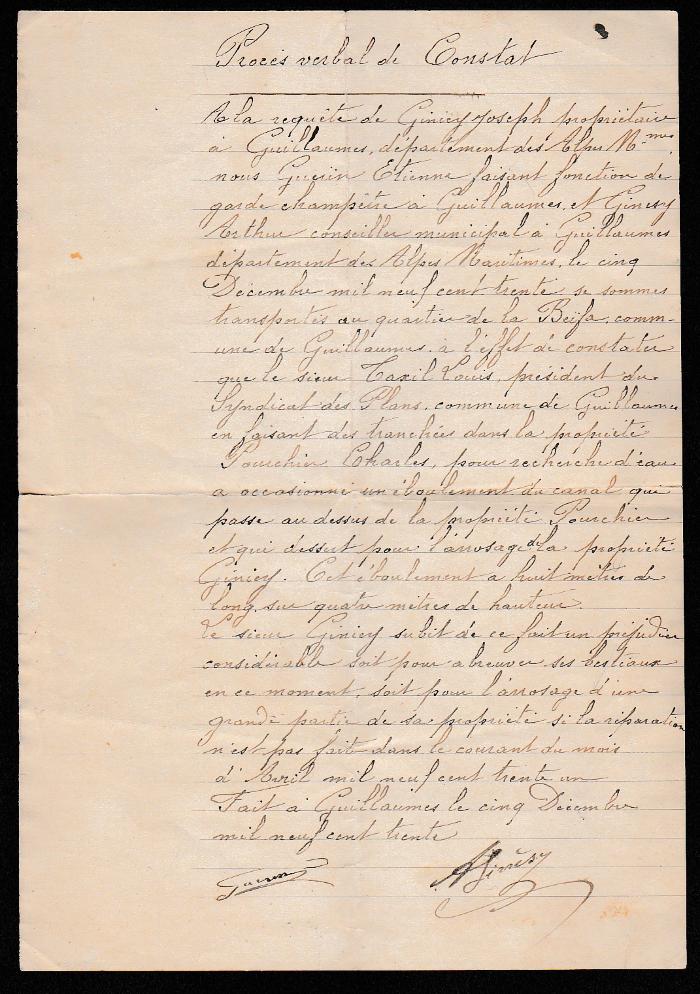 Procès verbal de Constat
A la requête de Giniey Joseph propriétaire
à Guillaumes, département des Alpes Mmes
nous Guérin Etienne faisant fonction de
garde champêtre à Guillaumes, et Ginésy
Arthur conseiller municipal à Guillaumes
département des Alpes Maritimes, le cinq
Décembre mil neuf cent trente se sommes
transportés au quartier de la Beïfa, comm-
une de Guillaumes. à l'effet de constater
que le sieur Taxil Louis, président du
Syndicat des Plans, commune de Guillaumes
en faisant des tranchées dans la propriété
Pourchier Charles, pour recherche d'eau
a occasionné un éboulement du canal qui
passe au dessus de la propriété Pourchier
et qui dessert pour l'arrosage de la propriété
Giniey. Cet éboulement a huit mètres de
long sur quatre mètres de hauteur.
Le sieur Giniey subit de ce fait un préjudice
considérable soit pour abreuver ses bestiaux
en ce moment, soit pour l'arrosage d'une
grande partie de sa propriété si la réparation
n'est pas faite dans le courant du mois
d'Avril mil neuf cent trente un
Fait à Guillaumes le cinq Décembre
mil neuf cent trente
Guerin
A Ginésy